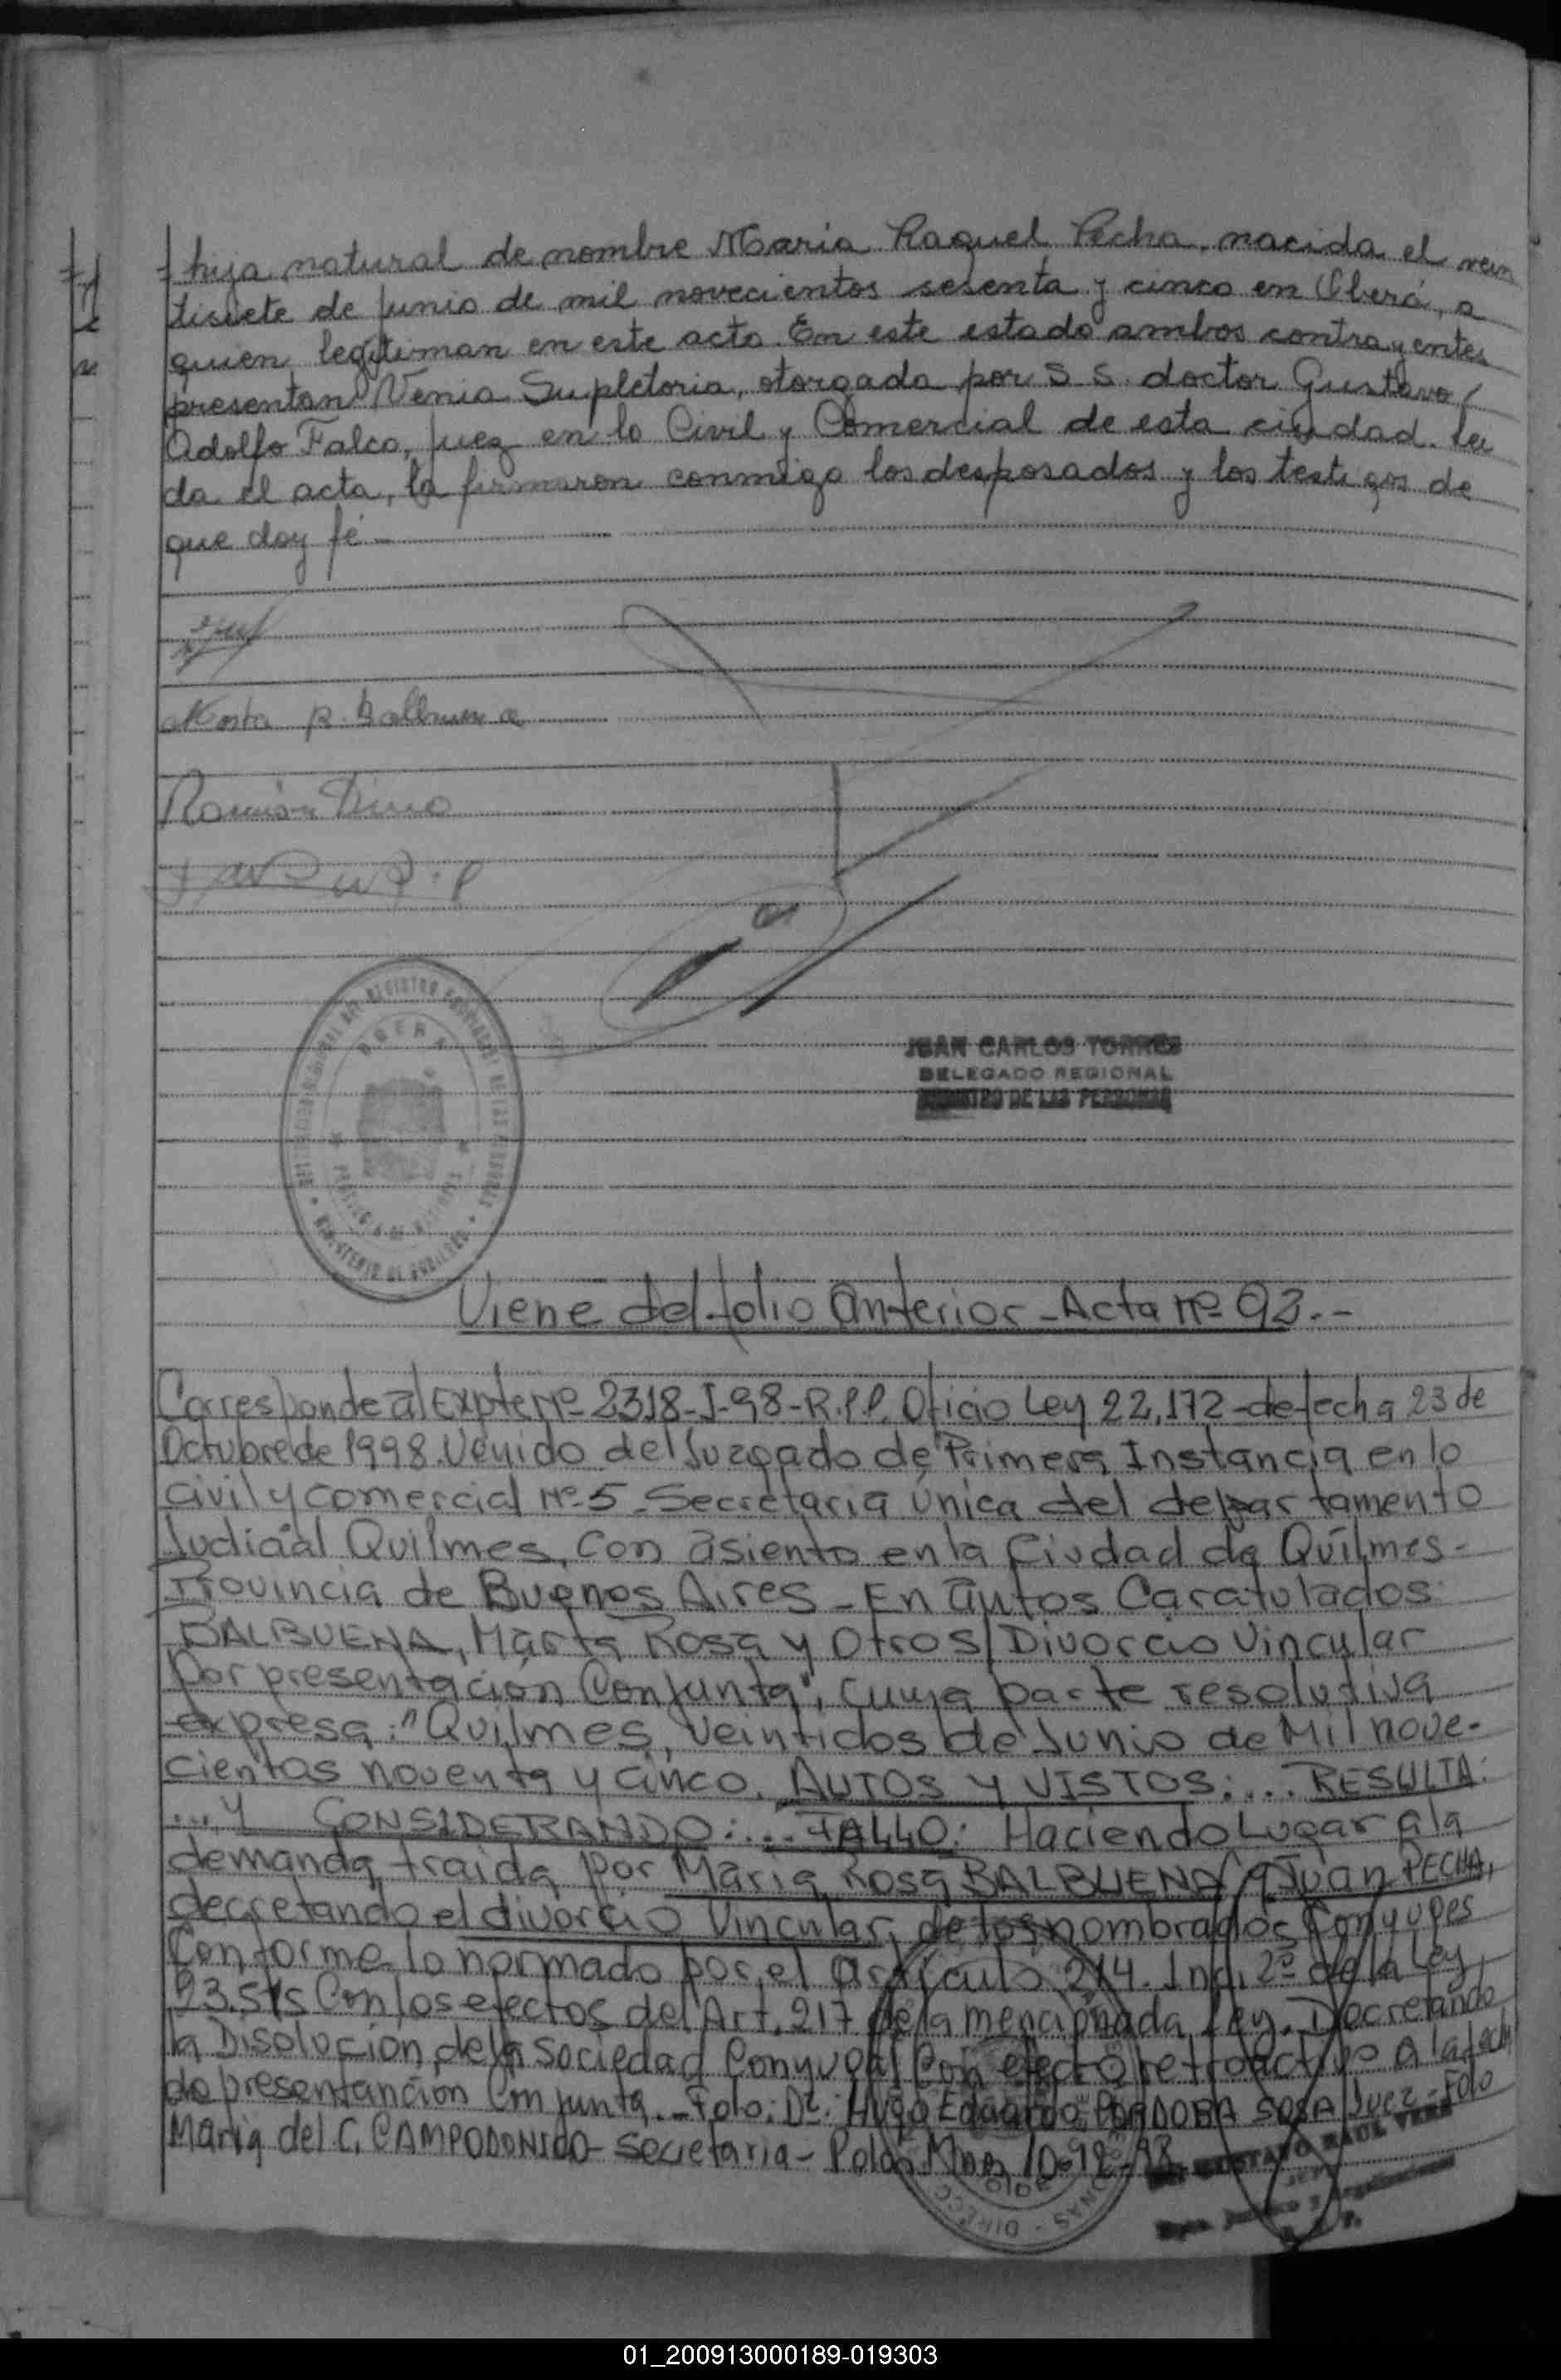 hija natural de nombre Maria Raquel Pecha, nacida el vein
tisiete de junio de mil novecientos sesenta y cinco en Oberá, a
quien legitiman en este acto. En este estado ambos contrayentes
presentan Venia Supletoria, otorgada por S S. doctor Gustavo
Adolfo Falco, juez en lo Civil y Comercial de esta ciudad. Leí
da el acta, la firmaron conmigo los desposados y los testigos de
que doy fé
Marta R. Balbuena
Ramón
JUAN CARLOS TORRES
DELEGADO REGIONAL
REGISTRO DE LAS PERSONAS
Viene del folio anterior - Acta nº 93.-
Corresponde al Expte Nº 2318-J-98-R.P.P. Oficio Ley 22.172 - de fecha 23 de
Octubre de 1998. Venido del Juzgado de Primera Instancia en lo
Civil y Comercial Nº 5 - Secretaria Única del departamento
Judicial Quilmes, con asiento en la Ciudad de Quilmes -
Provincia de Buenos Aires - En autos Caratulados
BALBUENA, Marta Rosa y Otros/ Divorcio Vincular
por presentación Conjunta", cuya parte resolutiva
expresa: "Quilmes, veintidos de Junio de Mil nove-
cientos noventa y cinco. AUTOS Y VISTOS: ... RESULTA:
... Y CONSIDERANDO: ... FALLO: Haciendo Lugar a la
demanda traida por Maria Rosa BALBUENA y Juan PECHA,
decretando el divorcio Vincular, de los nombrados Conyuges
Conforme lo normado por el artículo 214. Inc. 2º de la Ley
23.515 Con los efectos del Art. 217 de la mencionada Ley. Decretando
la Disolución de la Sociedad Conyugal Con efecto retroactivo a la fecha
de presentanción Conjunta. - Fdo: Dr. Hugo Eduardo CORDOBA SOSA Juez - Fdo
Maria del C. CAMPODONICO - Secretaria -
GUSTAVO RAUL VERA
JEFE